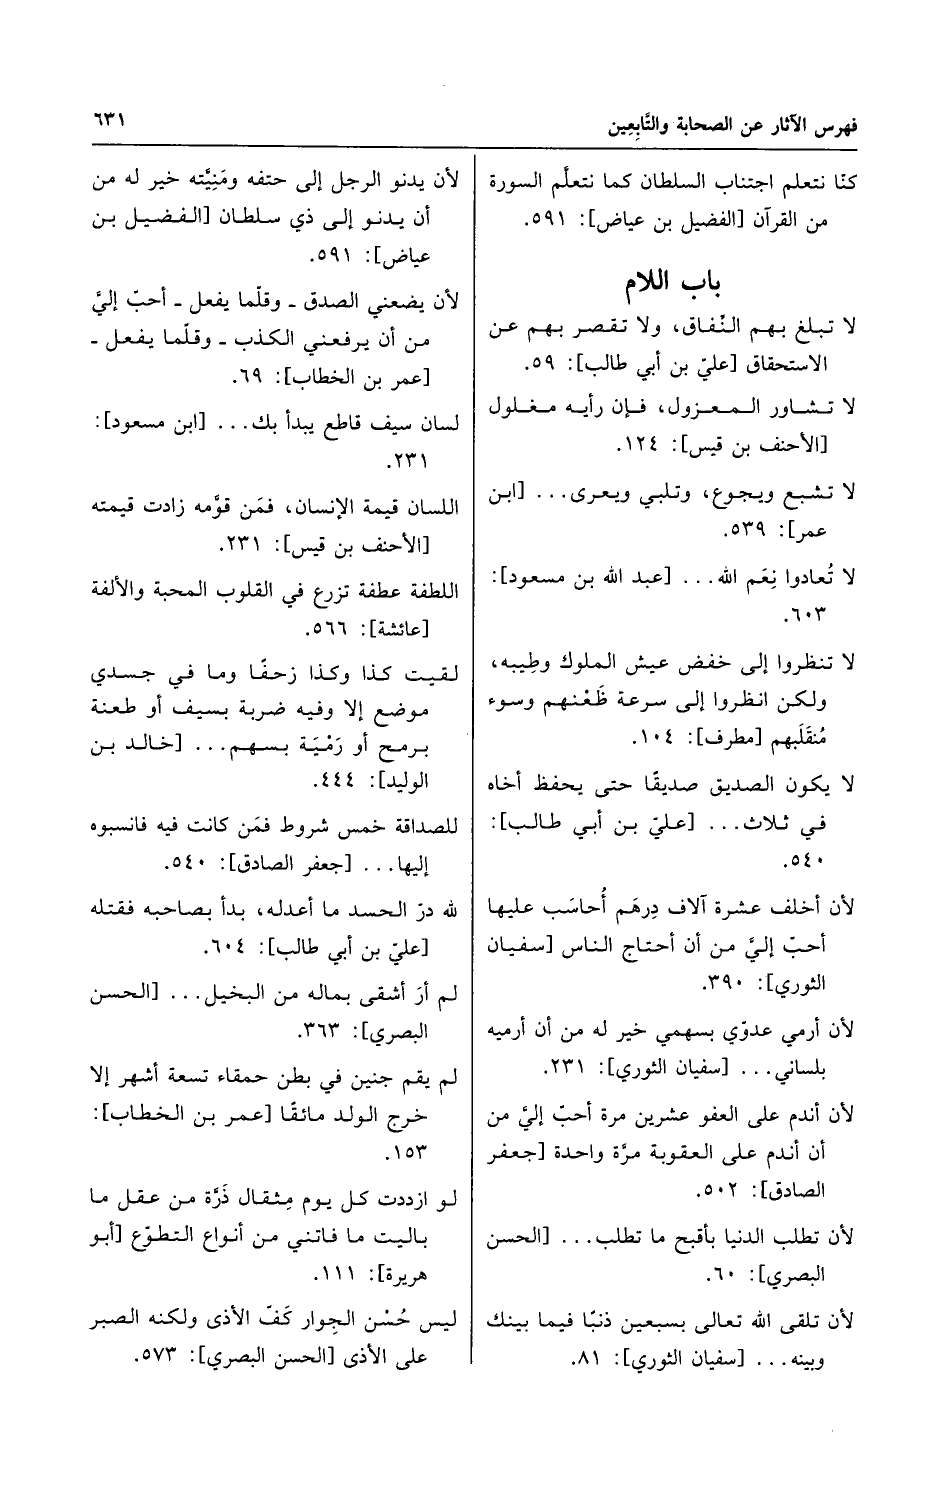 فهرس الآثار عن الصحابة والتَّابِعِين
٦٣١
كنّا نتعلم اجتناب السلطان كما نتعلَّم السورة
من القرآن [الفضيل بن عياض]: ٥٩١.
باب اللام
لا تبلغ بهم النِّفاق، ولا تقصر بهم عن
الاستحقاق [عليّ بن أبي طالب]: ٥٩.
لا تشاور المعزول، فإن رأيه مغلول
[الأحنف بن قيس]: ١٢٤.
لا تشبع ويجوع، وتلبي ويعرى... [ابن
عمر]: ٥٣٩.
لا تُعادوا نِعَم الله... [عبد الله بن مسعود]:
٦٠٣.
لا تنظروا إلى خفض عيش الملوك وطيبه،
ولكن انظروا إلى سرعة ظَعْنهم وسوء
مُنقَلَبهم [مطرف]: ١٠٤.
لا يكون الصديق صديقًا حتى يحفظ أخاه
في ثلاث... [عليّ بن أبي طالب]:
٥٤٠.
لأن أخلف عشرة آلاف دِرهَم أُحاسَب عليها
أحبّ إليَّ من أن أحتاج الناس [سفيان
الثوري]: ٣٩٠.
لأن أرمي عدوّي بسهمي خير له من أن أرميه
بلساني... [سفيان الثوري]: ٢٣١.
لأن أندم على العفو عشرين مرة أحبّ إليَّ من
أن أندم على العقوبة مرَّة واحدة [جعفر
الصادق]: ٥٠٢.
لأن تطلب الدنيا بأقبح ما تطلب... [الحسن
البصري]: ٦٠.
لأن تلقى الله تعالى بسبعين ذنبًا فيما بينك
وبينه... [سفيان الثوري]: ٨١.
لأن يدنو الرجل إلى حتفه ومَنِيَّته خير له من
أن يدنو إلى ذي سلطان [الفضيل بن
عياض]: ٥٩١.
لأن يضعني الصدق ـ وقلّما يفعل ـ أحبّ إليَّ
من أن يرفعني الكذب ـ وقلّما يفعل ـ
[عمر بن الخطاب]: ٦٩.
لسان سيف قاطع يبدأ بك... [ابن مسعود]:
٢٣١.
اللسان قيمة الإنسان، فمَن قوَّمه زادت قيمته
[الأحنف بن قيس]: ٢٣١.
اللطفة عطفة تزرع في القلوب المحبة والألفة
[عائشة]: ٥٦٦.
لقيت كذا وكذا زحفًا وما في جسدي
موضع إلا وفيه ضربة بسيف أو طعنة
برمح أو رَمْيَة بسهم... [خالد بن
الوليد]: ٤٤٤.
للصداقة خمس شروط فمَن كانت فيه فانسبوه
إليها... [جعفر الصادق]: ٥٤٠.
لله درّ الحسد ما أعدله، بدأ بصاحبه فقتله
[عليّ بن أبي طالب]: ٦٠٤.
لم أرَ أشقى بماله من البخيل... [الحسن
البصري]: ٣٦٣.
لم يقم جنين في بطن حمقاء تسعة أشهر إلا
خرج الولد مائقًا [عمر بن الخطاب]:
١٥٣.
لو ازددت كل يوم مِثقال ذَرَّة من عقل ما
باليت ما فاتني من أنواع التطوّع [أبو
هريرة]: ١١١.
ليس حُسْن الجِوار كَفّ الأذى ولكنه الصبر
على الأذى [الحسن البصري]: ٥٧٣.